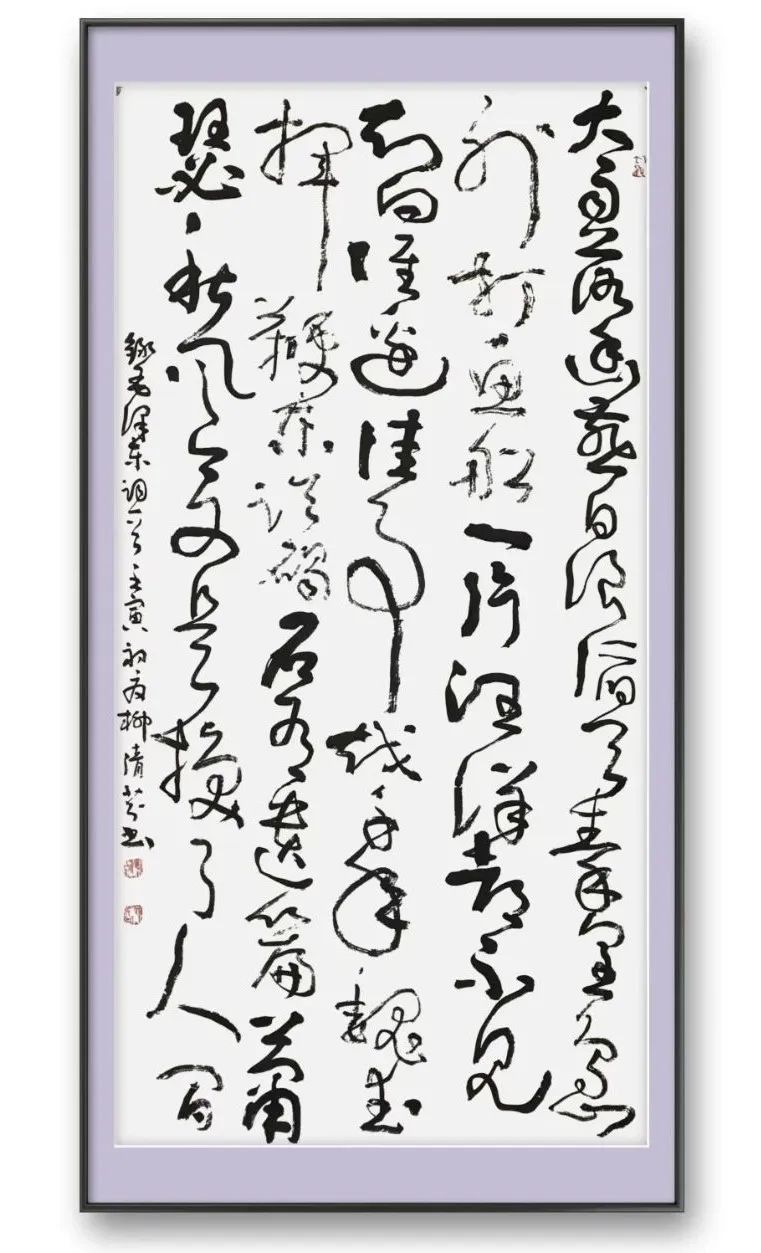 大雨落幽燕白浪滔天秦皇岛
外打鱼船一片汪洋都不见
知向谁边往事越千年魏武
挥鞭东临碣石有遗篇萧
瑟秋风今又是换了人间
录毛泽东词一首壬寅初夏柳清芬书